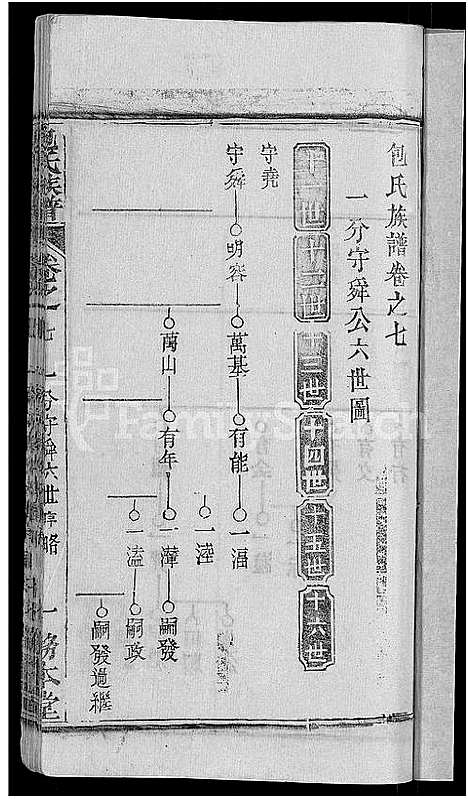 包氏族譜卷之七
一分守舜公六世圖
十一世 十二世 十三世 十四世 十五世 十六世
守堯
守舜 明容 萬基 有能 一湢
一溼
萬山 有年 一灂 嗣發
一溘 嗣政
嗣發過繼
包氏族譜 卷之七 一分守舜六世序略 一 務本堂